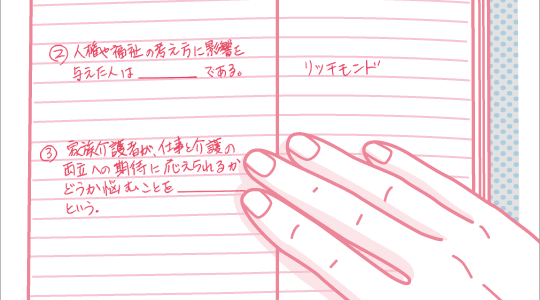 ② 人権や福祉の考え方に影響を
与えた人は ______ である。
リッチモンド
③ 家族介護者が、仕事と介護の
両立への期待に応えられるか
どうか悩むことを ______
という。